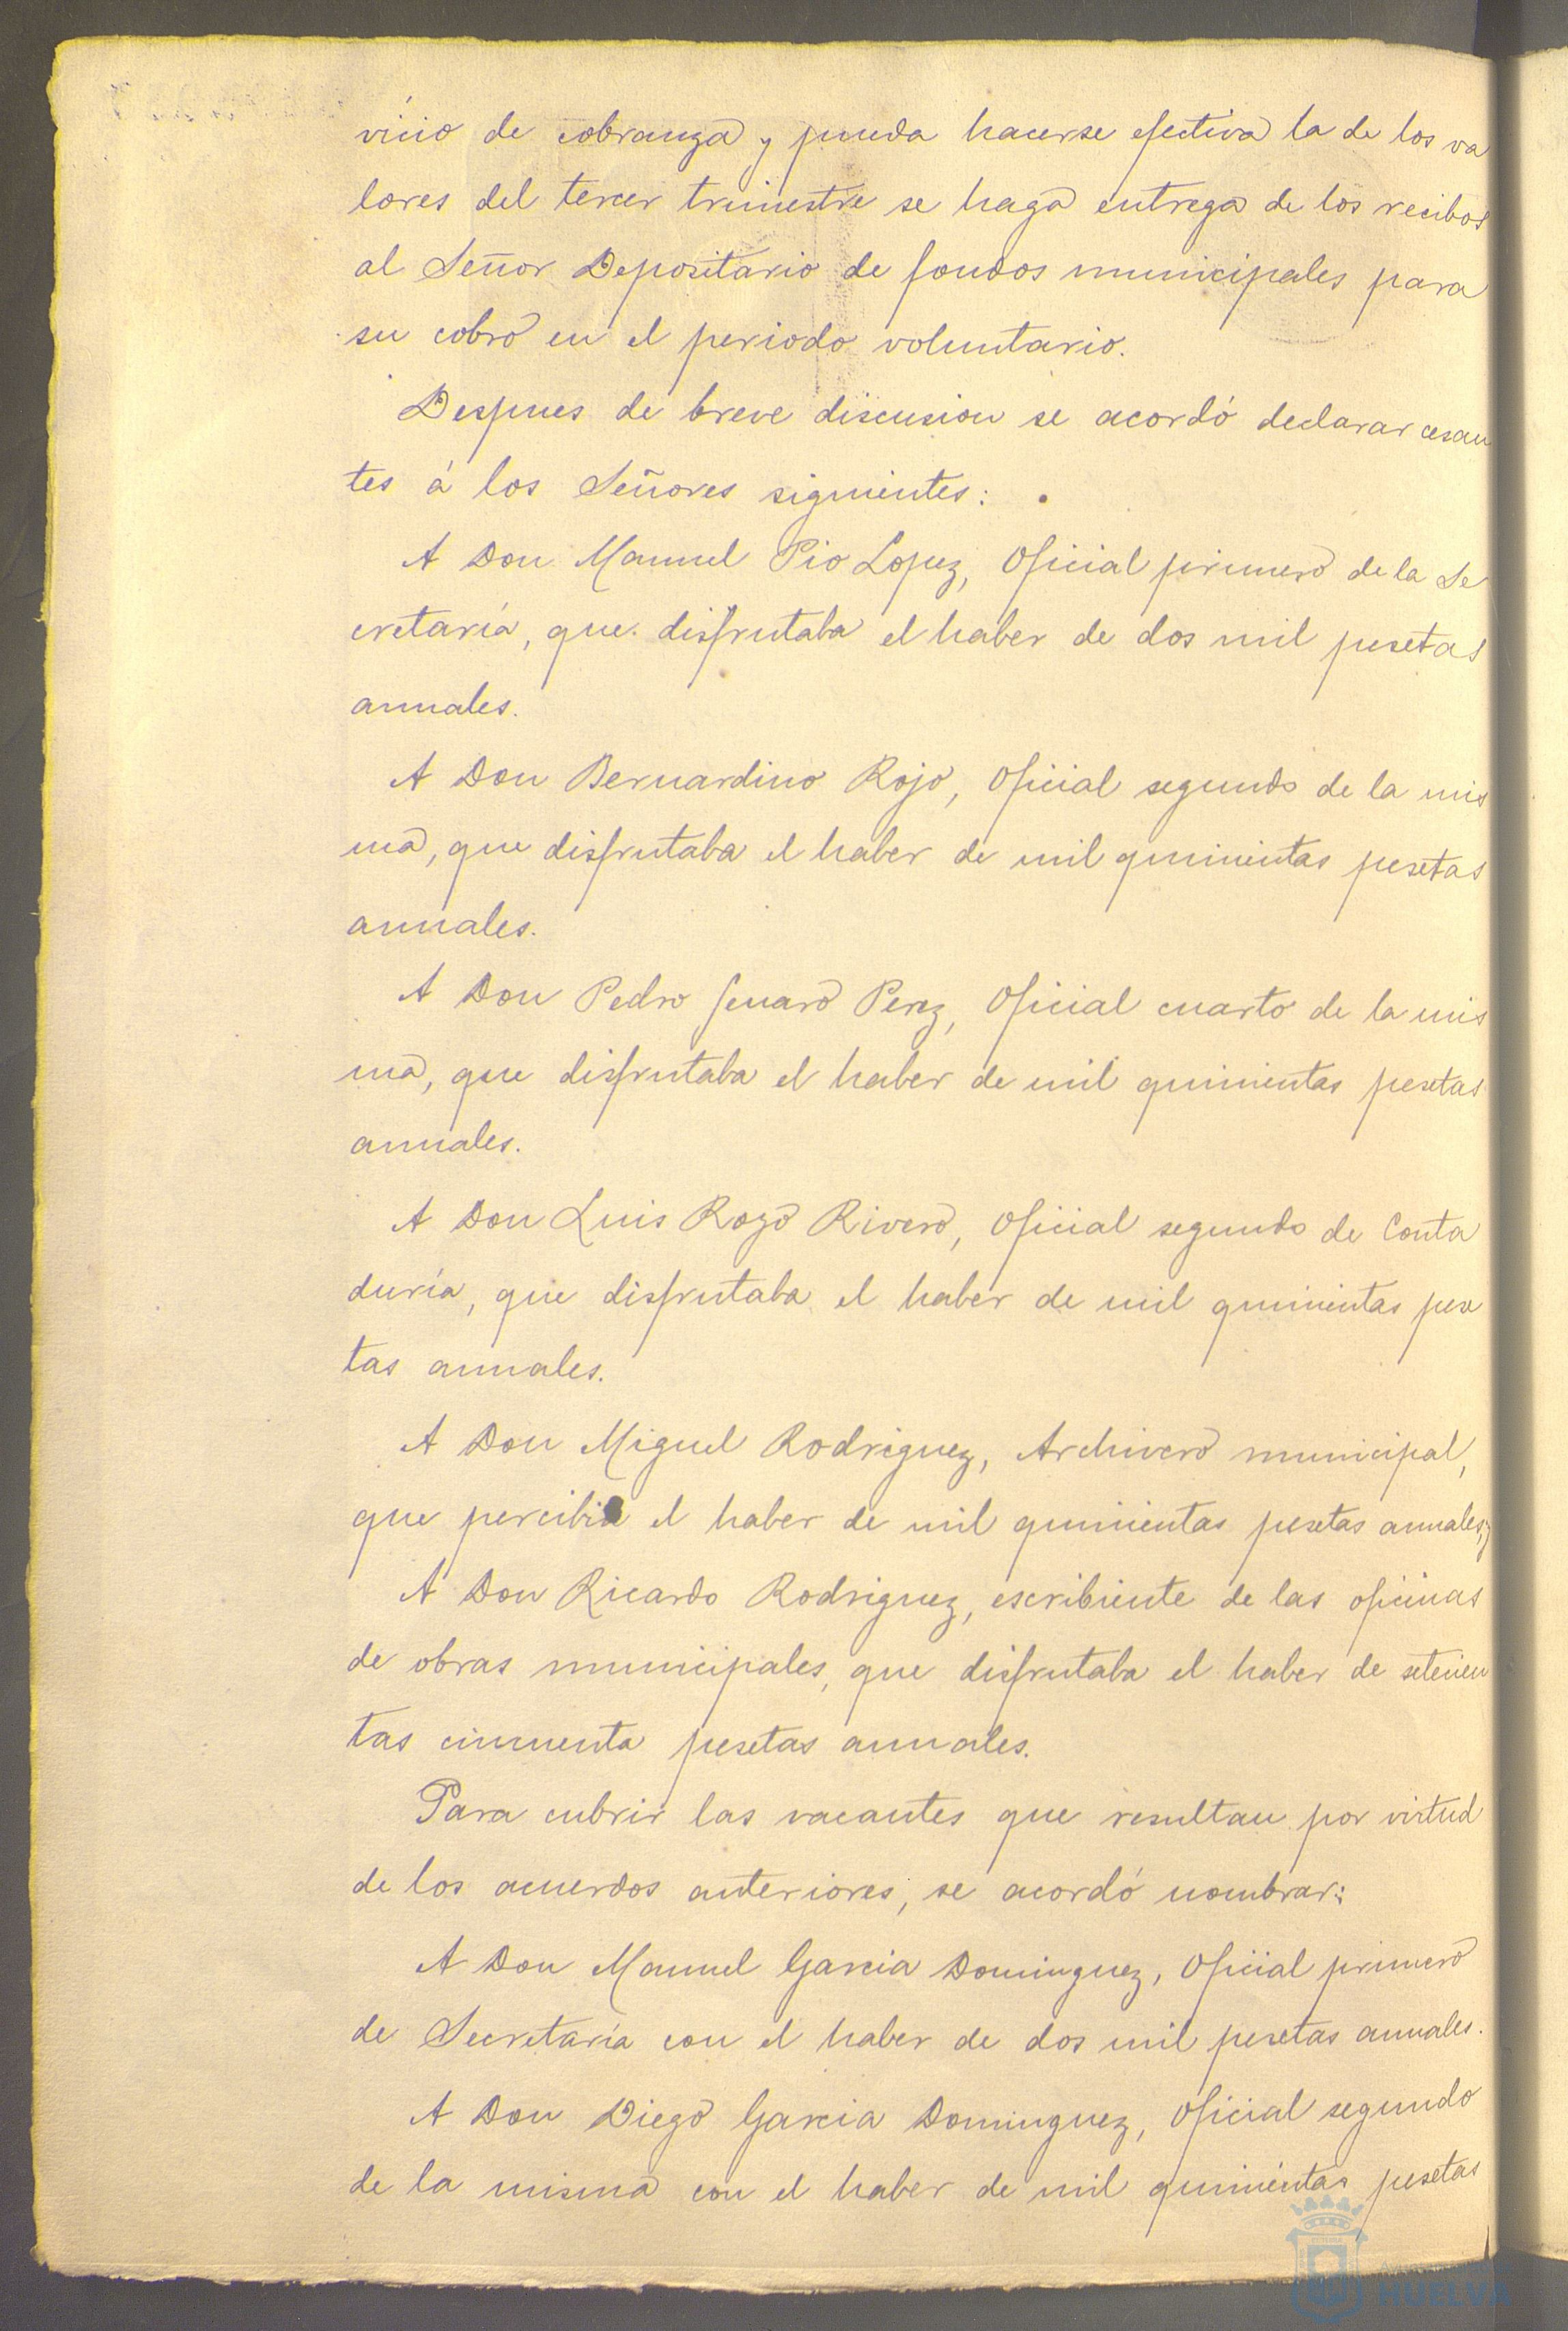 vicio de cobranza y pueda hacerse efectiva la de los va
lores del tercer trimestre se haga entrega de los recibos
al Señor Depositario de fondos municipales para
su cobro en el periodo voluntario.
Despues de breve discusion se acordó declarar cesan
tes á los Señores siguientes:
A Don Manuel Pio Lopez, Oficial primero de la Se
cretaría, que disfrutaba el haber de dos mil pesetas
anuales.
A Don Bernardino Rojo, Oficial segundo de la mis
ma, que disfrutaba el haber de mil quinientas pesetas
anuales.
A Don Pedro Genaro Perez, Oficial cuarto de la mis
ma, que disfrutaba el haber de mil quinientas pesetas
anuales.
A Don Luis Rivero, Oficial segundo de Conta
duría, que disfrutaba el haber de mil quinientas pese
tas anuales.
A Don Miguel Rodriguez, Archivero municipal,
que percibia el haber de mil quinientas pesetas anuales, y
A Don Ricardo Rodriguez, escribiente de las oficinas
de obras municipales, que disfrutaba el haber de setecien
tas cincuenta pesetas anuales.
Para cubrir las vacantes que resultan por virtud
de los acuerdos anteriores, se acordó nombrar:
A Don Manuel Garcia Dominguez, Oficial primero
de Secretaría con el haber de dos mil pesetas anuales.
A Don Diego Garcia Dominguez, Oficial segundo
de la misma con el haber de mil quinientas pesetas
HUELVA